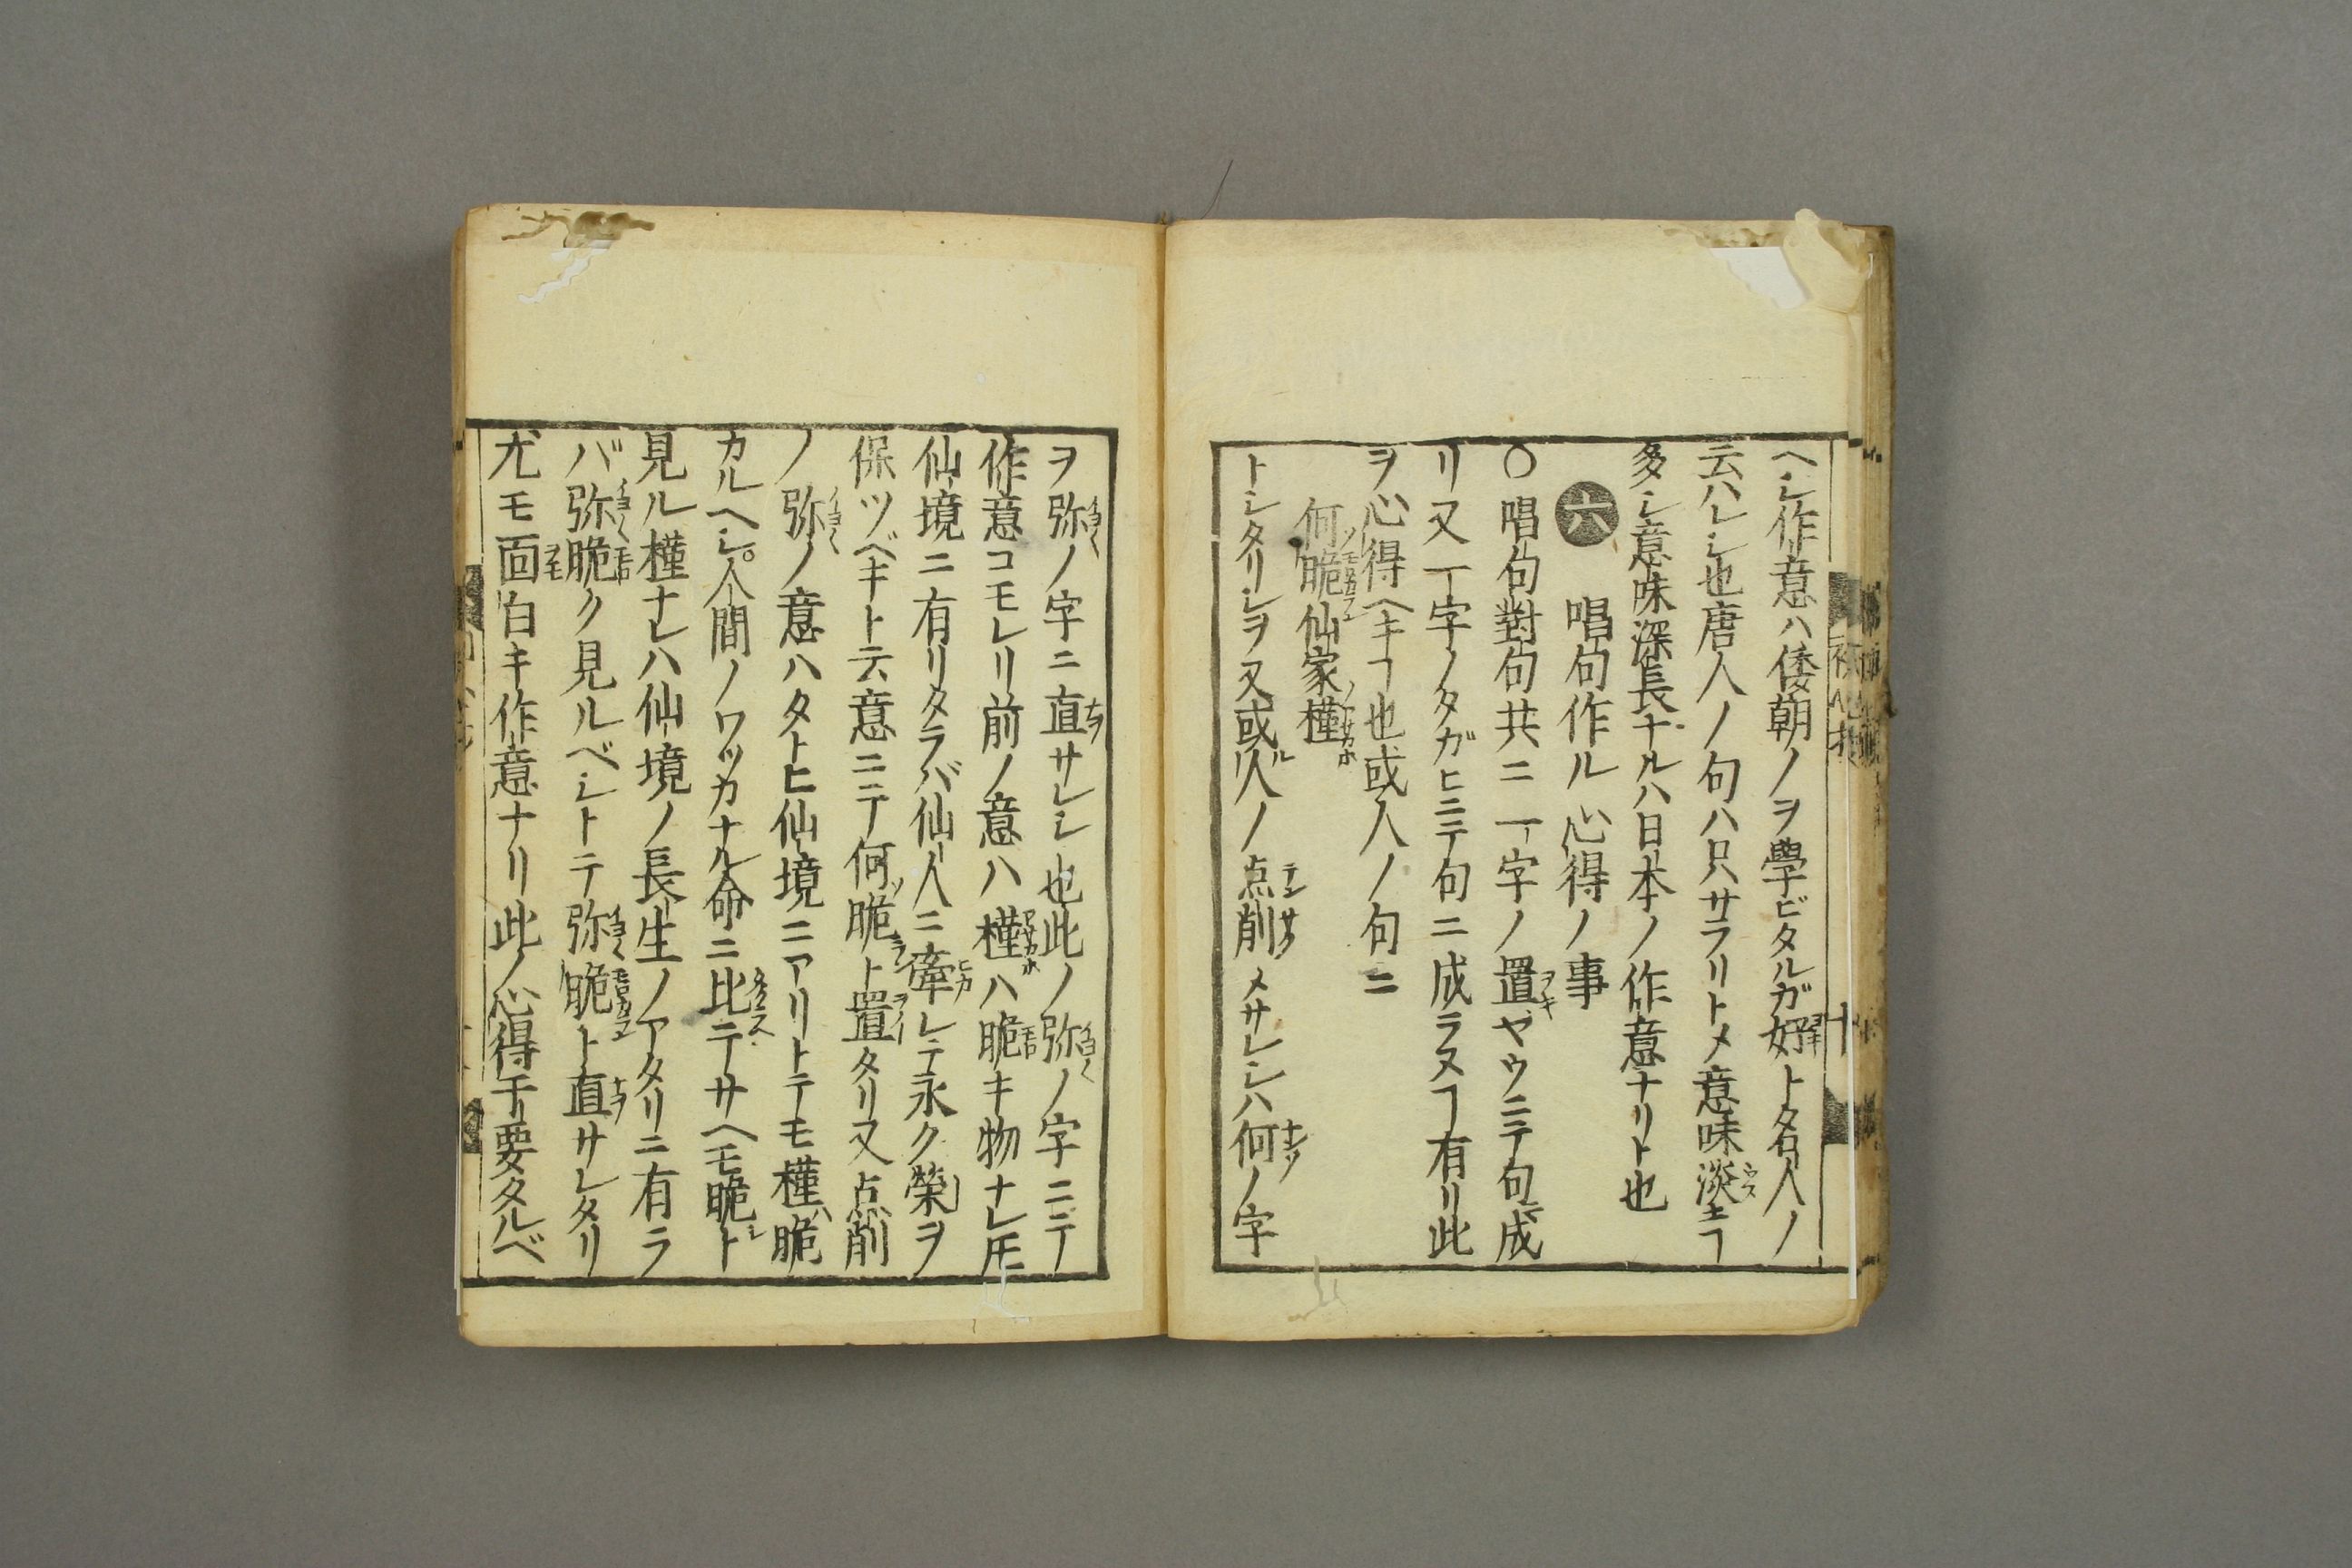 ヘシ作意ハ倭朝ノヲ學ビタルガ好ト名人ノ
云ハレシ也唐人ノ句ハ只サラリトメ意味淡キヿ
多シ意味深長ナルハ日本ノ作意ナリト也
六 唱句作ル心得ノ事
〇唱句對句共ニ一字ノ置ヤウニテ句成
リ又一字ノタガヒニテ句ニ成ラヌヿ有リ此
ヲ心得ヘキヿ也或人ノ句ニ
何脆仙家槿
トシタリシヲ又或人ノ点削メサレシハ何ノ字
ヲ弥ノ字ニ直サレシ也此ノ弥ノ字ニテ
作意コモレリ前ノ意ハ槿ハ脆キ物ナレ𪜈
仙境ニ有リタラバ仙人ニ牽レテ永ク榮ヲ
保ツベキト云意ニテ何脆ト置タリ又点削
ノ弥ノ意ハタトヒ仙境ニアリトテモ槿脆
カルヘシ人間ノワツカナル命ニ比テサヘモ脆ト
見ル槿ナレハ仙境ノ長生ノアタリニ有ラ
バ弥脆ク見ルベシトテ弥脆ト直サレタリ
尤モ面白キ作意ナリ此ノ心得干要タルベ